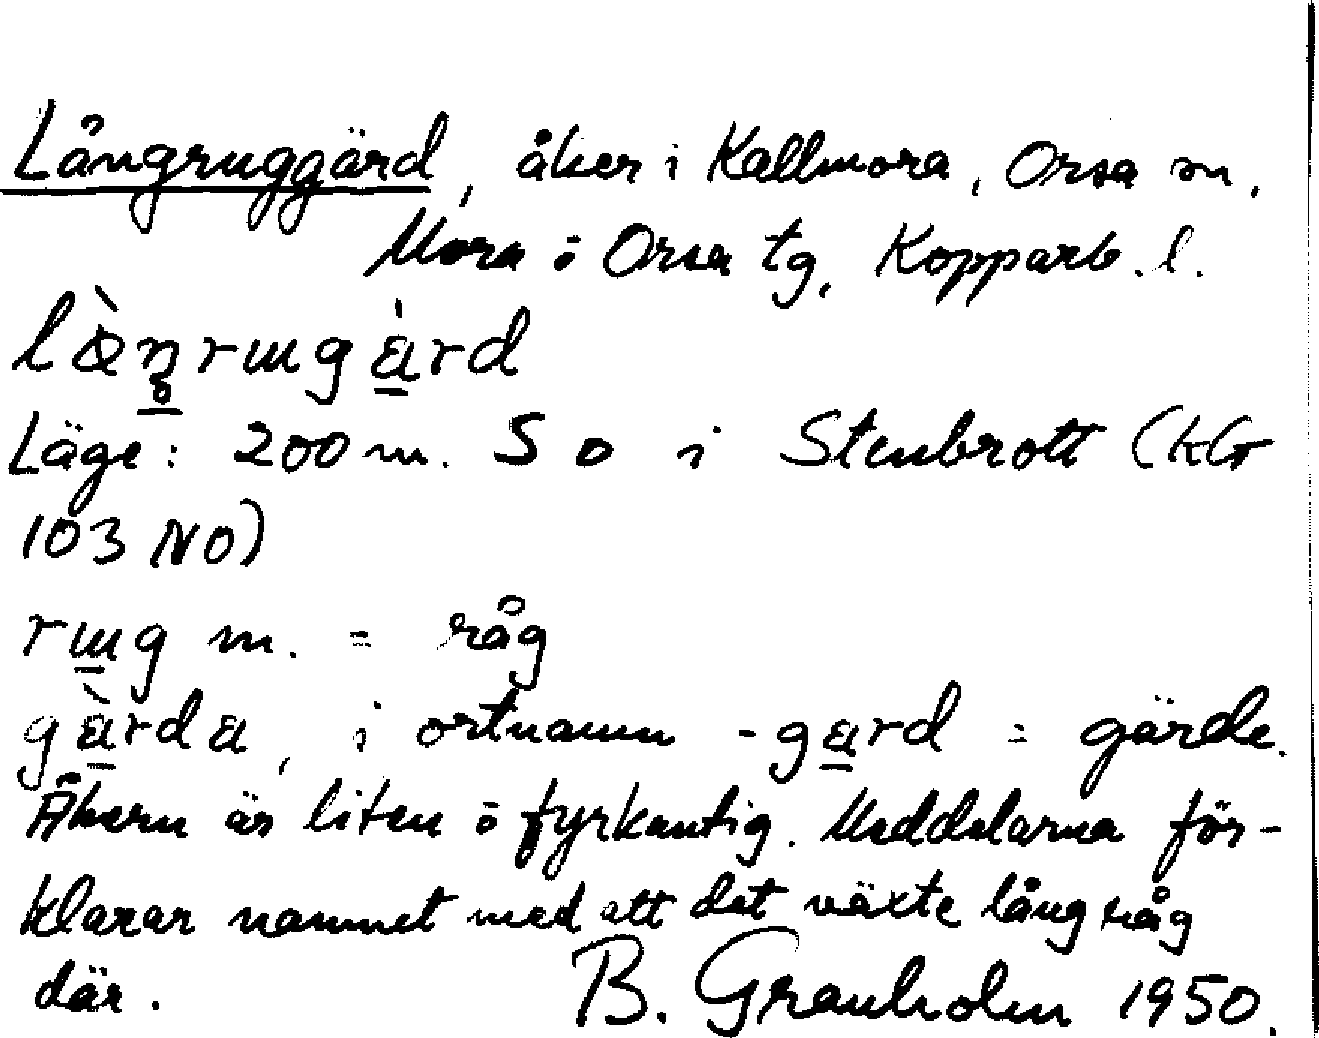 Långruggärd, åker i Kallmora, Orsa sn,
Mora o Orsa tg, Kopparb. l.
lœ̀ŋrɯgàrd
Läge: 200 m. S O i Stenbrott (KG
103 NO)
rɯg m. = råg
gàrda, i ortnamn -gard = gärde.
Åkern är liten o fyrkantig. Meddelarna för-
klarar namnet med att det växte lång råg
där. B. Granholm 1950.